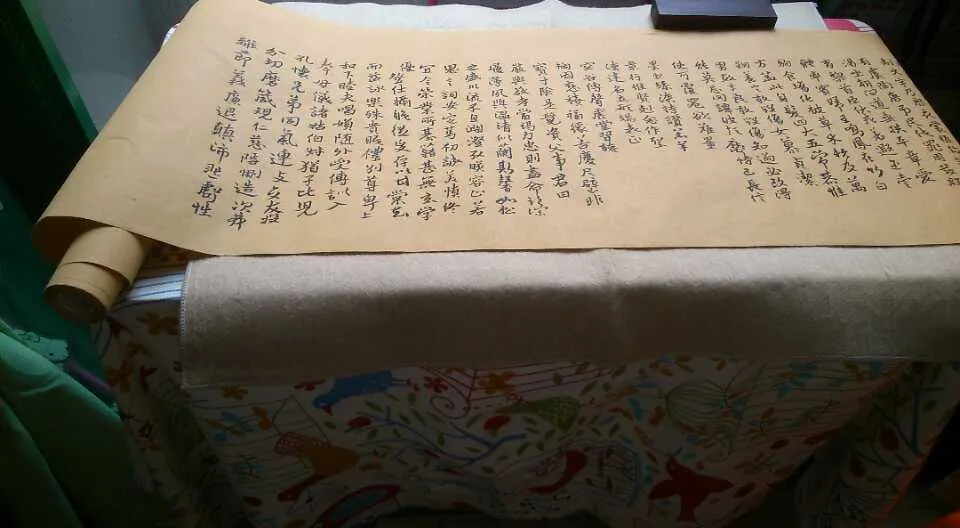 有虞陶唐弔民伐罪周發殷
湯坐朝問道垂拱平章愛
育黎首臣伏戎羌遐邇壹
體率賓歸王鳴鳳在竹白
駒食場化被草木賴及萬
方蓋此身髮四大五常恭惟
鞠養豈敢毀傷女慕貞潔
男效才良知過必改得
能莫忘罔談彼短靡恃己長信
使可覆器欲難量
墨悲絲染詩讚羔羊
景行維賢克念作聖
德建名立形端表正
空谷傳聲虛堂習聽
禍因惡積福緣善慶尺璧非
寶寸陰是競資父事君曰
嚴與敬孝當竭力忠則盡命臨深
履薄夙興溫凊似蘭斯馨如松
之盛川流不息淵澄取映容止若
思言詞安定篤初誠美慎終
宜令榮業所基籍甚無竟學
優登仕攝職從政存以甘棠去
而益詠樂殊貴賤禮別尊卑上
和下睦夫唱婦隨外受傅訓入
奉母儀諸姑伯叔猶子比兒
孔懷兄弟同氣連枝交友投
分切磨箴規仁慈隱惻造次弗
離節義廉退顛沛匪虧性